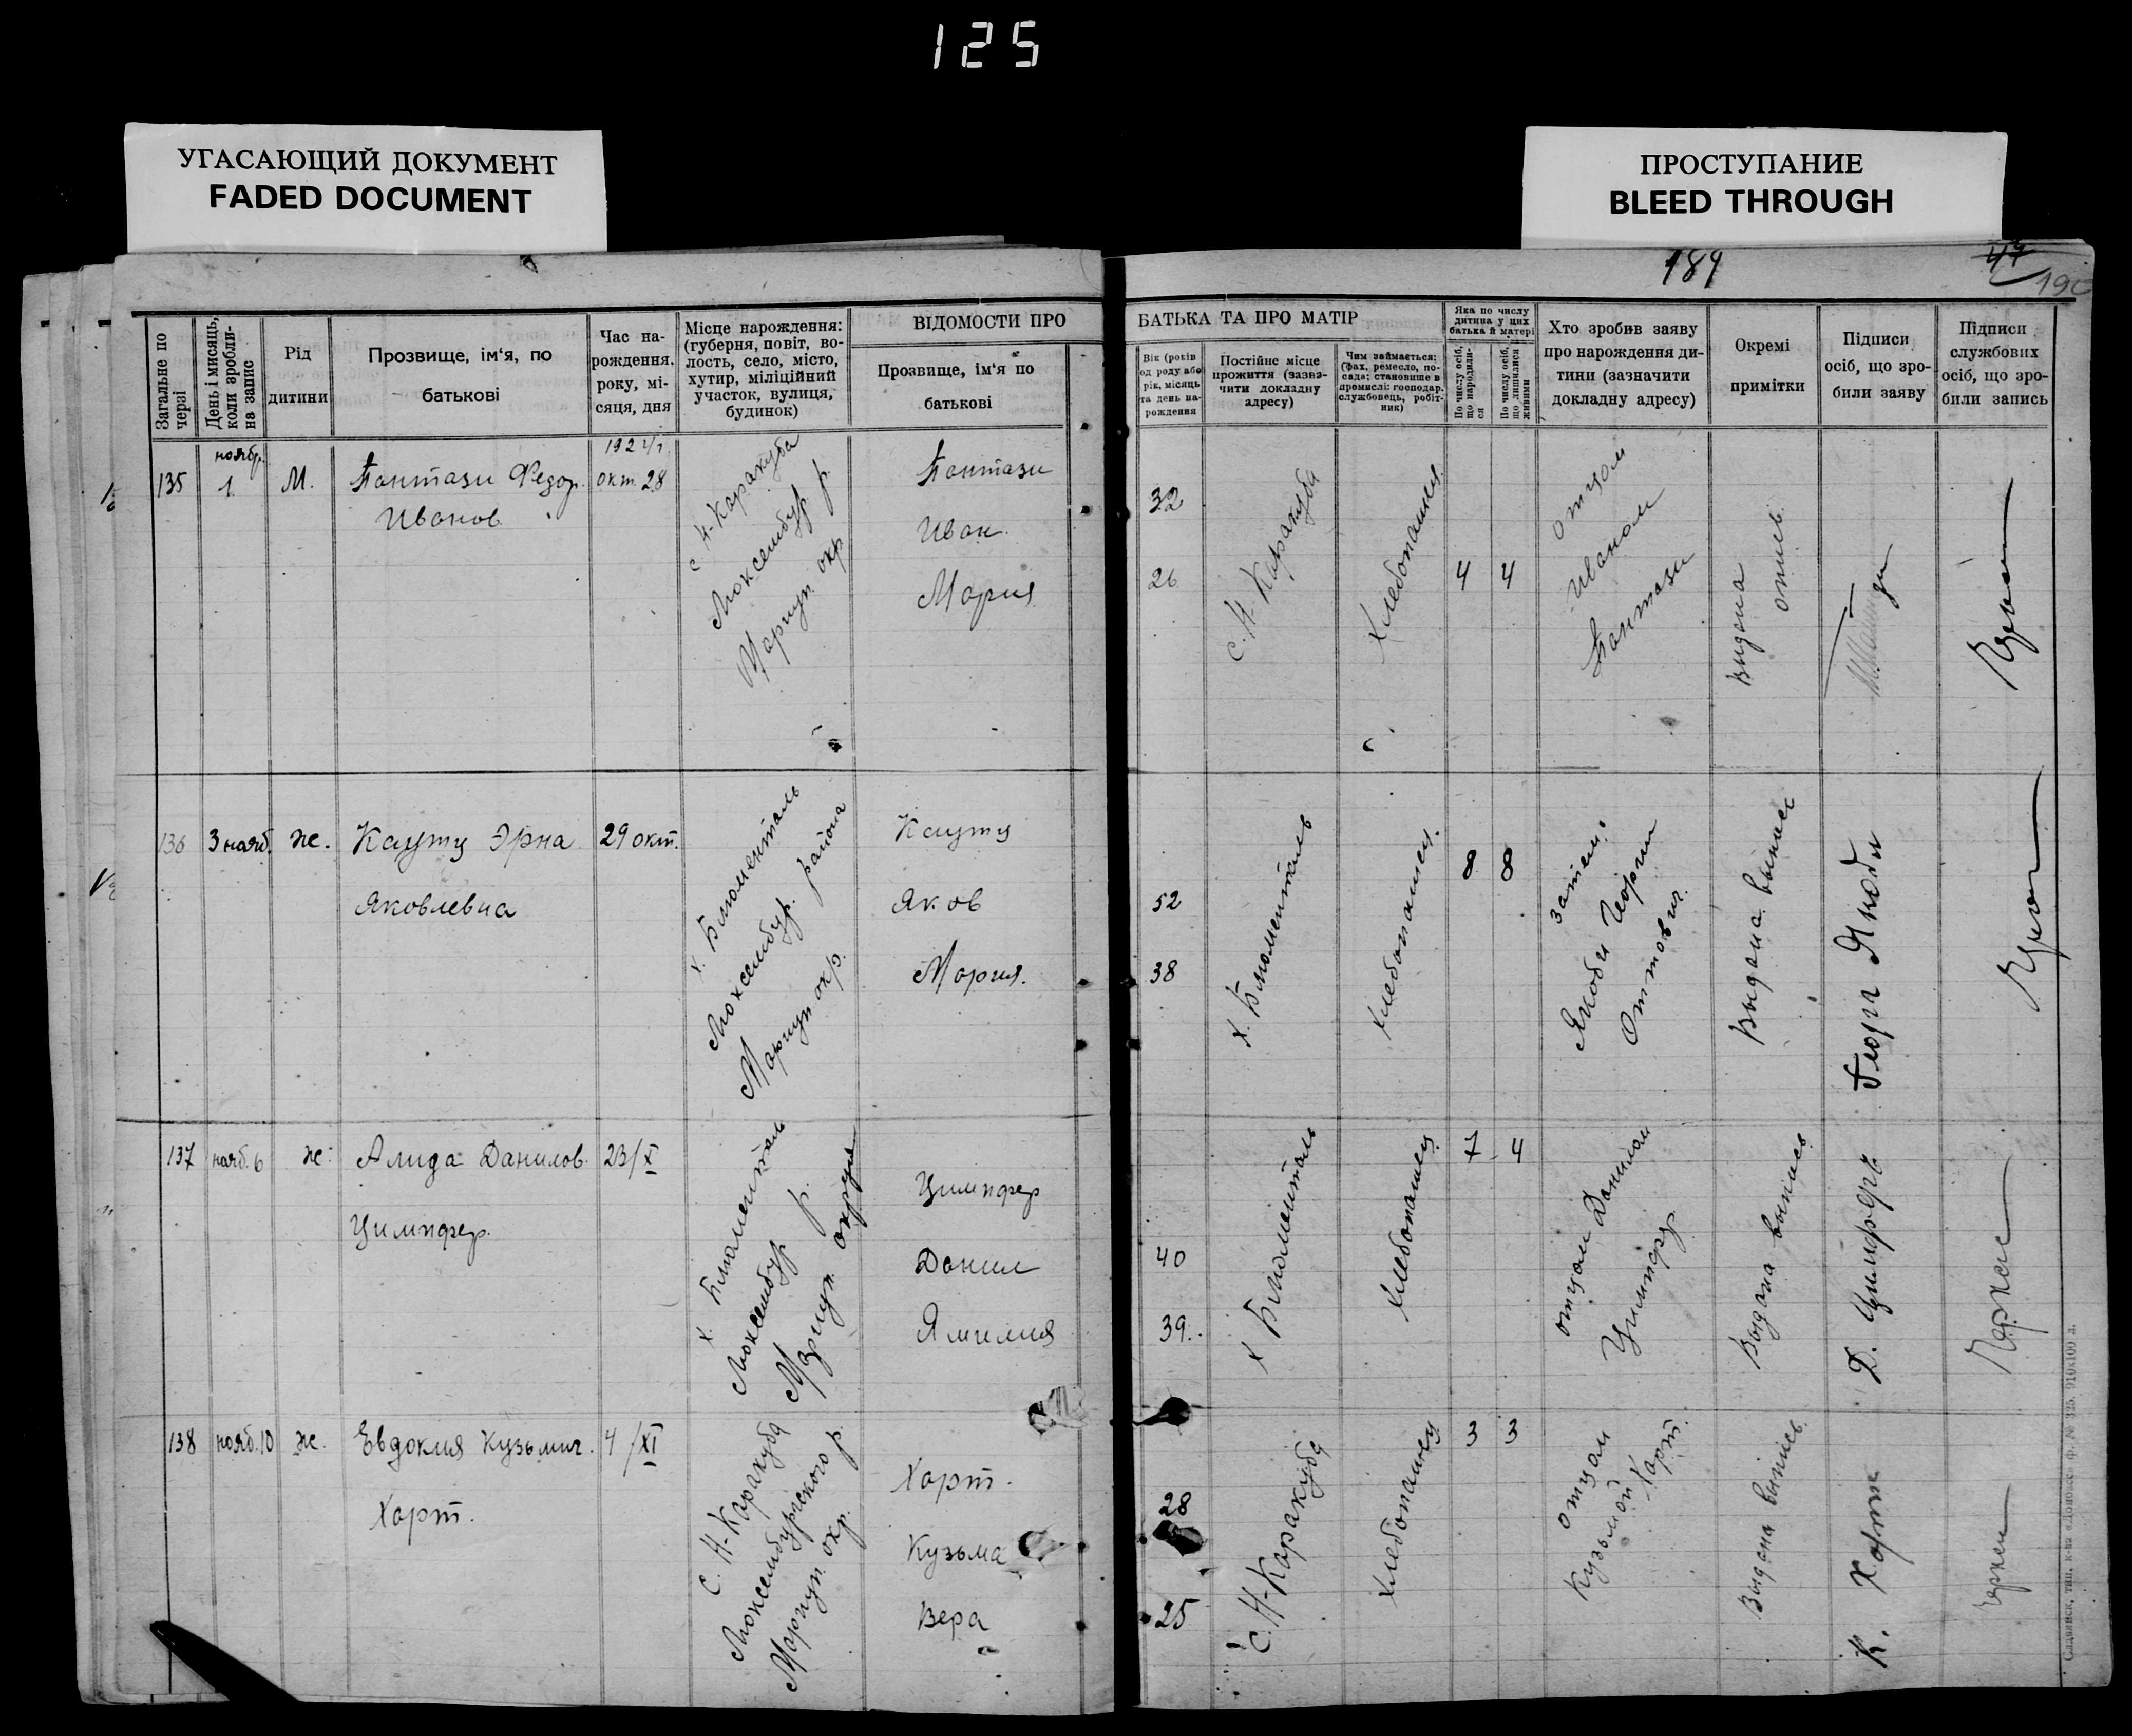 125
УГАСАЮЩИЙ ДОКУМЕНТ
FADED DOCUMENT
ПРОСТУПАНИЕ
BLEED THROUGH
189
47
190
Загальне по черзі
День і мисяць, коли зробли- на запис
Рід
дитини
Прозвище, ім'я, по
батькові
Час на-
рождення.
року, мі-
сяця, дня
Місце нарождення:
(губерня, повіт, во-
лость, село, місто,
хутир, міліційний
участок, вулиця,
будинок)
ВІДОМОСТИ ПРО
Прозвище, ім'я по
батькові
БАТЬКА ТА ПРО МАТІР
Вік (років
од роду або
рік, місяць
та день на-
рождення
Постійне місце
прожиття (зазна-
чити докладну
адресу)
Чим займається:
(фах, ремесло, по-
сада; становище в
промислі: господар.
службовець, робіт-
ник)
Яка по числу
дитина у цих
батька й матері
По числу осіб, що народили- ся
По числу осіб, що лишилися живими
Хто зробив заяву
про нарождення ди-
тини (зазначити
докладну адресу)
Окремі
примітки
Підписи
осіб, що зро-
били заяву
Підписи
службових
осіб, що зро-
били запись
135
ноябр.
1.
М.
Пантази Федор.
Иванов.
1924 г.
окт. 28
с Н-Каракуба
Люксембур р.
Мариуп. окр.
Пантази
Иван
Мария
32
26
с. Н-Каракуба
Хлебопашец
4 4
отцом
Иваном
Пантази
Выдана
136
3 нояб.
ж.
Кауту Эрна
Яковлевна
29 окт.
х. Блюменталь
Люксембур. района
Мариуп окр.
Кауту
Яков
Мария.
52
38
х. Блюменталь
хлебопашец.
8 8
зятем.
Якоби Георги
Оттович.
Выдана выпись
Георг Якоби
137
нояб. 6
ж.
Алида Данилов.
Цимпфер.
23/XI
х. Блюменталь
Люксембур р.
Мариуп. округа
Цимпфер
Данил
Ямилия
40
39.
х Блюменталь
хлебопашец
7 4
отцом Данилом
Цимпфер.
Выдана выпись
Д. Цимпферъ
138
нояб. 10
ж.
Евдокия Кузьмич.
Харт.
4/XI
с. Н-Каракуба
Люксембургского р.
Мариуп. окр.
Харт.
Кузьма
Вера
28
25
с. Н-Каракуба
хлебопашец
3 3
отцом
Кузьмой Харт.
Выдана выпись.
К. Харт